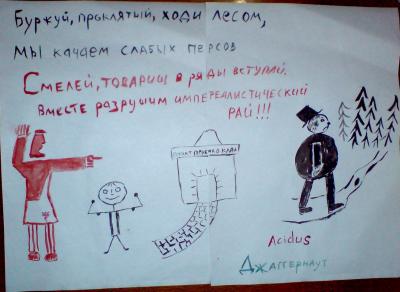 Буржуй, проклятый, ходи лесом,
мы качаем слабых персов
Смелей, товарищ в ряды вступай.
вместе разрушим империалистический
рай!!!
Acidus
Джаггернаут